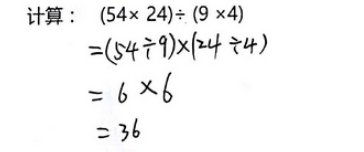 计算： (54× 24)÷ (9 ×4)
=(54÷9)×(24÷4)
= 6 ×6
= 36